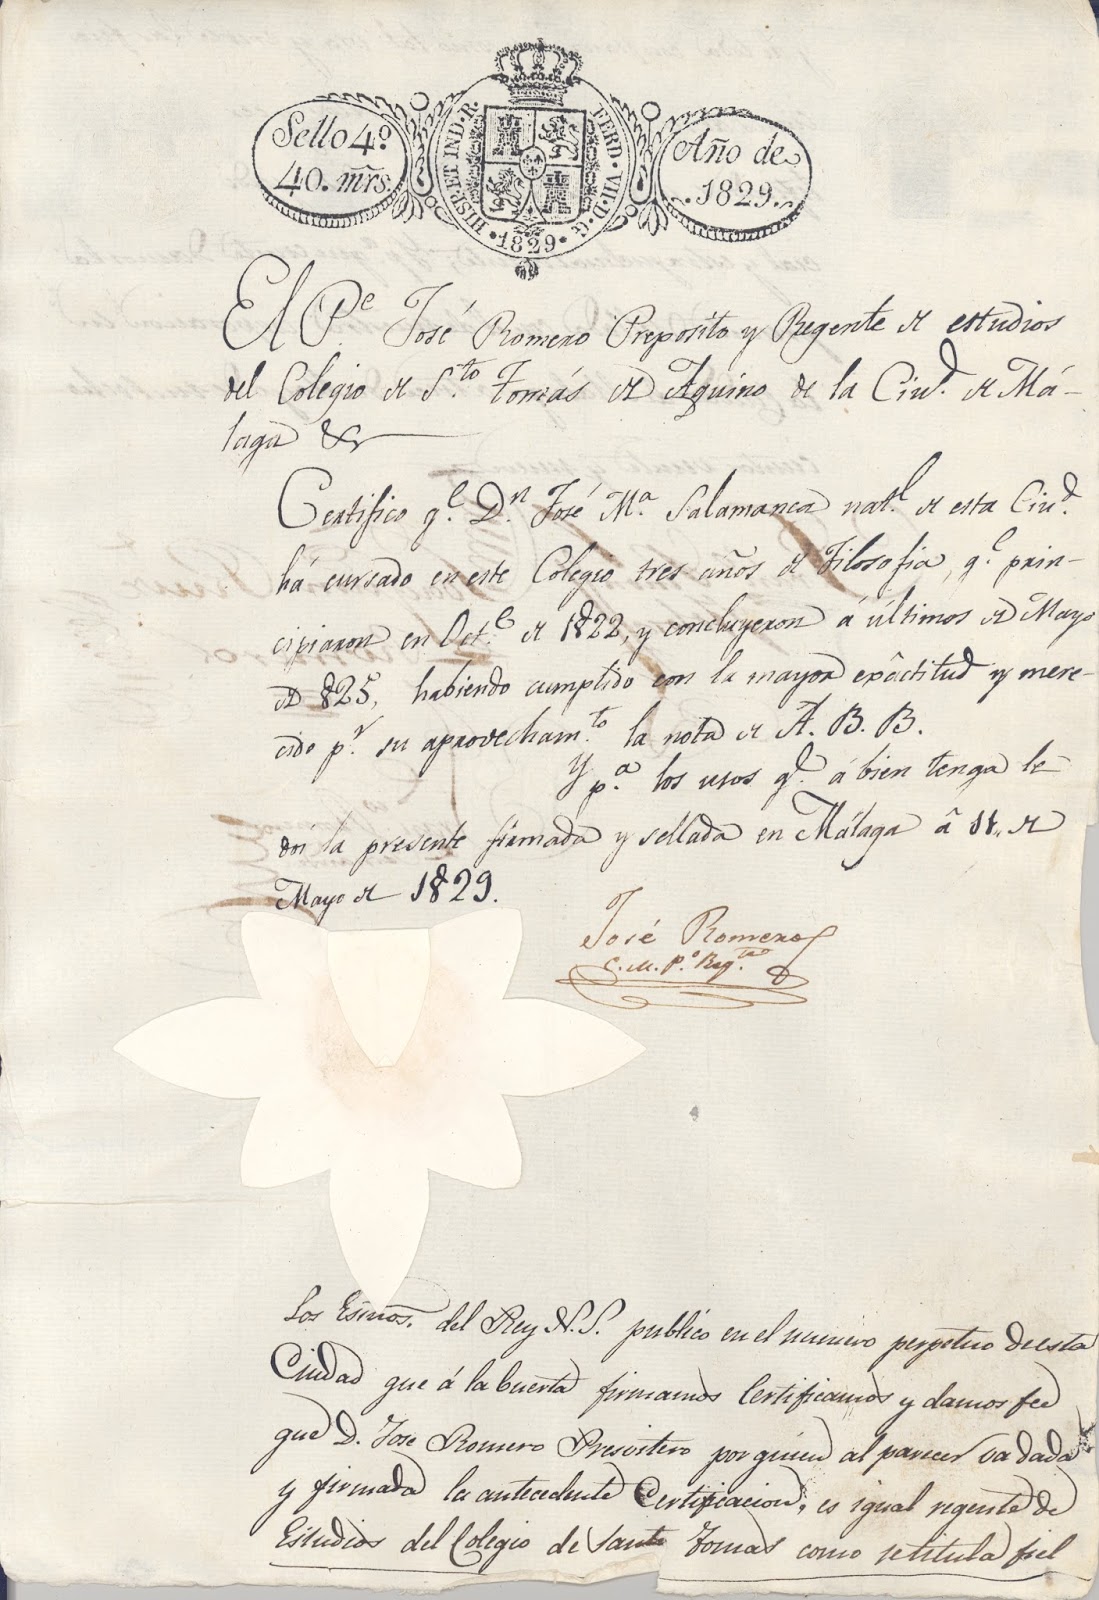 Sello 4º
40. mrs.
HISP. ET IND. R.
FERD. VII. D. G.
1829
Año de
1829.
El P.e José Romero Preposito y Regente de estudios
del Colegio de S.to Tomás de Aquino de la Ciu.d de Má-
laga &
Certifico q.e D.n José M.a Salamanca nat.l de esta Ciu.d
há cursado en este Colegio tres años de Filosofia, q.e prin-
cipiaron en Oct.e de 1822, y concluyeron á últimos de Mayo
de 825, habiendo cumplido con la mayor exâctitud y mere-
cido p.r su aprovecham.to la nota de A. B. B.
Y p.a los usos q.e á bien tenga le
doi la presente firmada y sellada en Málaga â 11,, de
Mayo de 1829.
José Romero
Los Esnos. del Rey N. S. publico en el numero perpetuo de esta
Ciudad que á la buerta firmamos Certificamos y damos fee
que D. Jose Romero Presvitero por quien al parecer va dada
y firmada la antecedente Certificacion, es igual regente de
Estudios del Colegio de Santo Tomas como se titula fiel